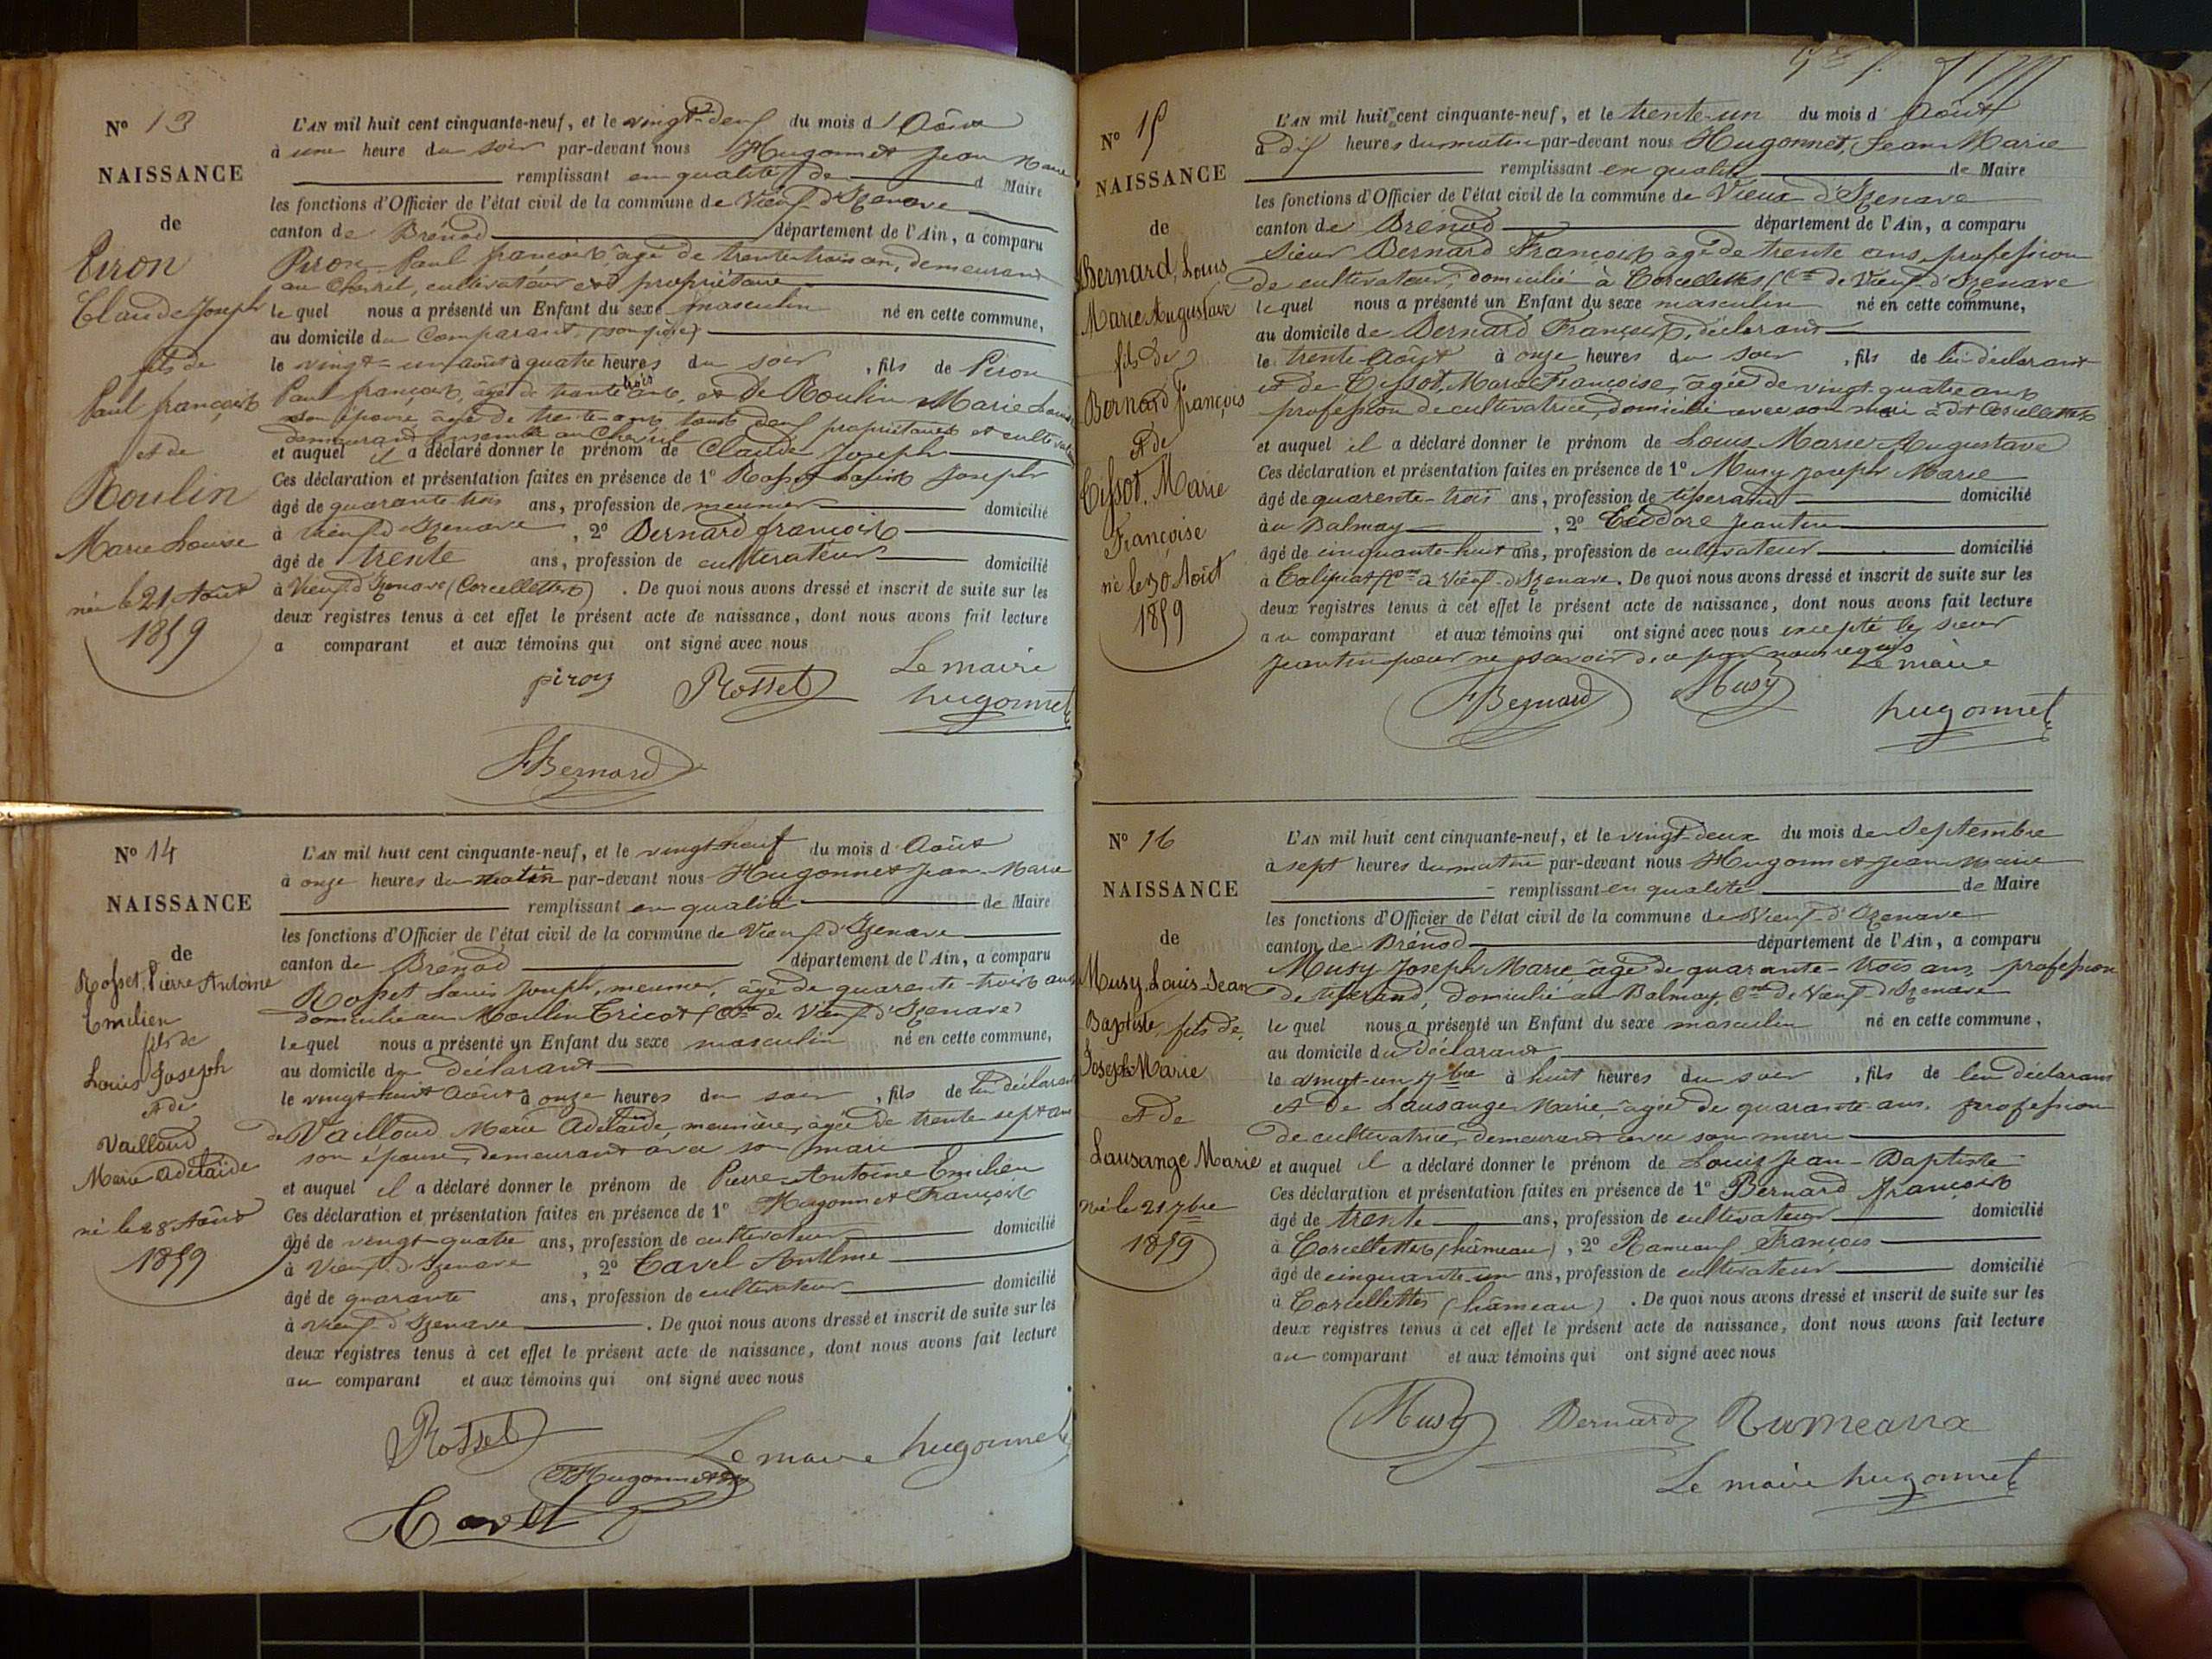 N° 13
NAISSANCE
de
Piron
Claude Joseph
fils de
Paul françois
et de
Roulin
Marie Louise
née le 21 Août
1859
L'AN mil huit cent cinquante-neuf, et le vingt-deux du mois d'Août
à une heure du soir par-devant nous Hugonnet Jean Marie
remplissant en qualité de d Maire
les fonctions d'Officier de l'état civil de la commune de Vieux d'Izenave
canton de Brénod département de l'Ain, a comparu
Piron Paul françois âgé de trente trois an, demeurant
au Chevril, cultivateur et propriétaire
lequel nous a présenté un Enfant du sexe masculin né en cette commune,
au domicile du Comparant (son père)
le vingt-un août à quatre heures du soir, fils de Piron
Paul françois, âgé de trente trois ans, et de Roulin Marie Louise
son épouse âgée de trente ans tous deux propriétaires et cultivateurs
demeurant ensemble au Chevril
et auquel il a déclaré donner le prénom de Claude Joseph
Ces déclaration et présentation faites en présence de 1° Rosset Joseph
âgé de quarante trois ans, profession de meunier domicilié
à Vieux d'Izenave, 2° Bernard françois
âgé de trente ans, profession de cultivateur domicilié
à Vieux d'Izenave (Corcellettes). De quoi nous avons dressé et inscrit de suite sur les
deux registres tenus à cet effet le présent acte de naissance, dont nous avons fait lecture
a comparant et aux témoins qui ont signé avec nous
piron Rosset Le maire
hugonnet
FBernard
N° 14
NAISSANCE
de
Rosset, Pierre Antoine
Emilien
fils de
Louis Joseph
et de
Vailloud
Marie Adélaïde
né le 28 Août
1859
L'AN mil huit cent cinquante-neuf, et le vingt-neuf du mois d'Août
à onze heures du matin par-devant nous Hugonnet Jean-Marie
remplissant en qualité de Maire
les fonctions d'Officier de l'état civil de la commune de Vieux d'Izenave
canton de Brénod département de l'Ain, a comparu
Rosset Louis Joseph, meunier, âgé de quarante-trois ans
domicilié au Moulin Tricot (Cne de Vieux d'Izenave)
lequel nous a présenté un Enfant du sexe masculin né en cette commune,
au domicile du déclarant
le vingt-huit Août à onze heures du soir, fils de lui déclarant
de Vailloud Marie Adélaïde, meunière, âgée de trente sept ans
son épouse, demeurant avec son mari
et auquel il a déclaré donner le prénom de Pierre-Antoine Emilien
Ces déclaration et présentation faites en présence de 1° Hugonnet François
âgé de vingt-quatre ans, profession de cultivateur domicilié
à Vieux d'Izenave, 2° Cavel Anthme
âgé de quarante ans, profession de cultivateur domicilié
à Vieux d'Izenave. De quoi nous avons dressé et inscrit de suite sur les
deux registres tenus à cet effet le présent acte de naissance, dont nous avons fait lecture
au comparant et aux témoins qui ont signé avec nous
Rosset Le maire hugonnet
FHugonnet
Cavel
N° 15
NAISSANCE
de
Bernard, Louis
Marie Augustave
fils de
Bernard françois
et de
Tissot, Marie
Françoise
né le 30 Août
1859
L'AN mil huit cent cinquante-neuf, et le trente-un du mois d'Août
à dix heures du matin par-devant nous Hugonnet, Jean Marie
remplissant en qualité de Maire
les fonctions d'Officier de l'état civil de la commune de Vieux d'Izenave
canton de Brénod département de l'Ain, a comparu
Sieur Bernard François âgé de trente ans, profession
de cultivateur, domicilié à Corcellettes (Cne de Vieux d'Izenave
lequel nous a présenté un Enfant du sexe masculin né en cette commune,
au domicile de Bernard François, déclarant
le trente Août à onze heures du soir, fils de lui déclarant
et de Tissot, Marie Françoise, âgée de vingt-quatre ans
profession de cultivatrice, domiciliée avec son mari à dt Corcellettes
et auquel il a déclaré donner le prénom de Louis Marie Augustave
Ces déclaration et présentation faites en présence de 1° Musy Joseph Marie
âgé de quarente-trois ans, profession de tisserand domicilié
à au Balmay, 2° Téodore Jeantin
âgé de cinquante-huit ans, profession de cultivateur domicilié
à Vieux-d'Izenave. De quoi nous avons dressé et inscrit de suite sur les
deux registres tenus à cet effet le présent acte de naissance, dont nous avons fait lecture
au comparant et aux témoins qui ont signé avec nous excepté le sieur
Jeantin pour ne savoir de ce par nous requis
Le maire
FBernard Musy hugonnet
N° 16
NAISSANCE
de
Musy, Louis-Jean
Baptiste fils de
Joseph Marie
et de
Lausange Marie
né le 21 7bre
1859
L'AN mil huit cent cinquante-neuf, et le vingt-deux du mois de Septembre
à sept heures du matin par-devant nous Hugonnet Jean Marie
remplissant en qualité de Maire
les fonctions d'Officier de l'état civil de la commune de Vieux d'Izenave
canton de Brénod département de l'Ain, a comparu
Musy Joseph Marie, âgé de quarante-trois ans, profession
de tisserand, domicilié au Balmay, Cne de Vieux d'Izenave
lequel nous a présenté un Enfant du sexe masculin né en cette commune,
au domicile du déclarant
le vingt-un 7bre à huit heures du soir, fils de lui déclarant
et de Lausange Marie, âgée de quarante ans, profession
de cultivatrice, demeurant avec son mari
et auquel il a déclaré donner le prénom de Louis Jean-Baptiste
Ces déclaration et présentation faites en présence de 1° Bernard françois
âgé de trente ans, profession de cultivateur domicilié
à Corcellettes (hâmeau), 2° Rameaux François
âgé de cinquante-un ans, profession de cultivateur domicilié
à Corcellettes (hâmeau). De quoi nous avons dressé et inscrit de suite sur les
deux registres tenus à cet effet le présent acte de naissance, dont nous avons fait lecture
au comparant et aux témoins qui ont signé avec nous
Musy Bernard Rumeaux
Le maire hugonnet